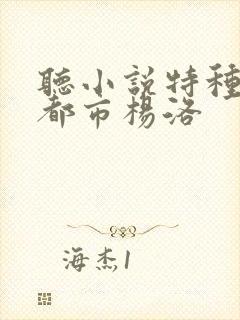 聽小説特種
都市楊洛
海杰1